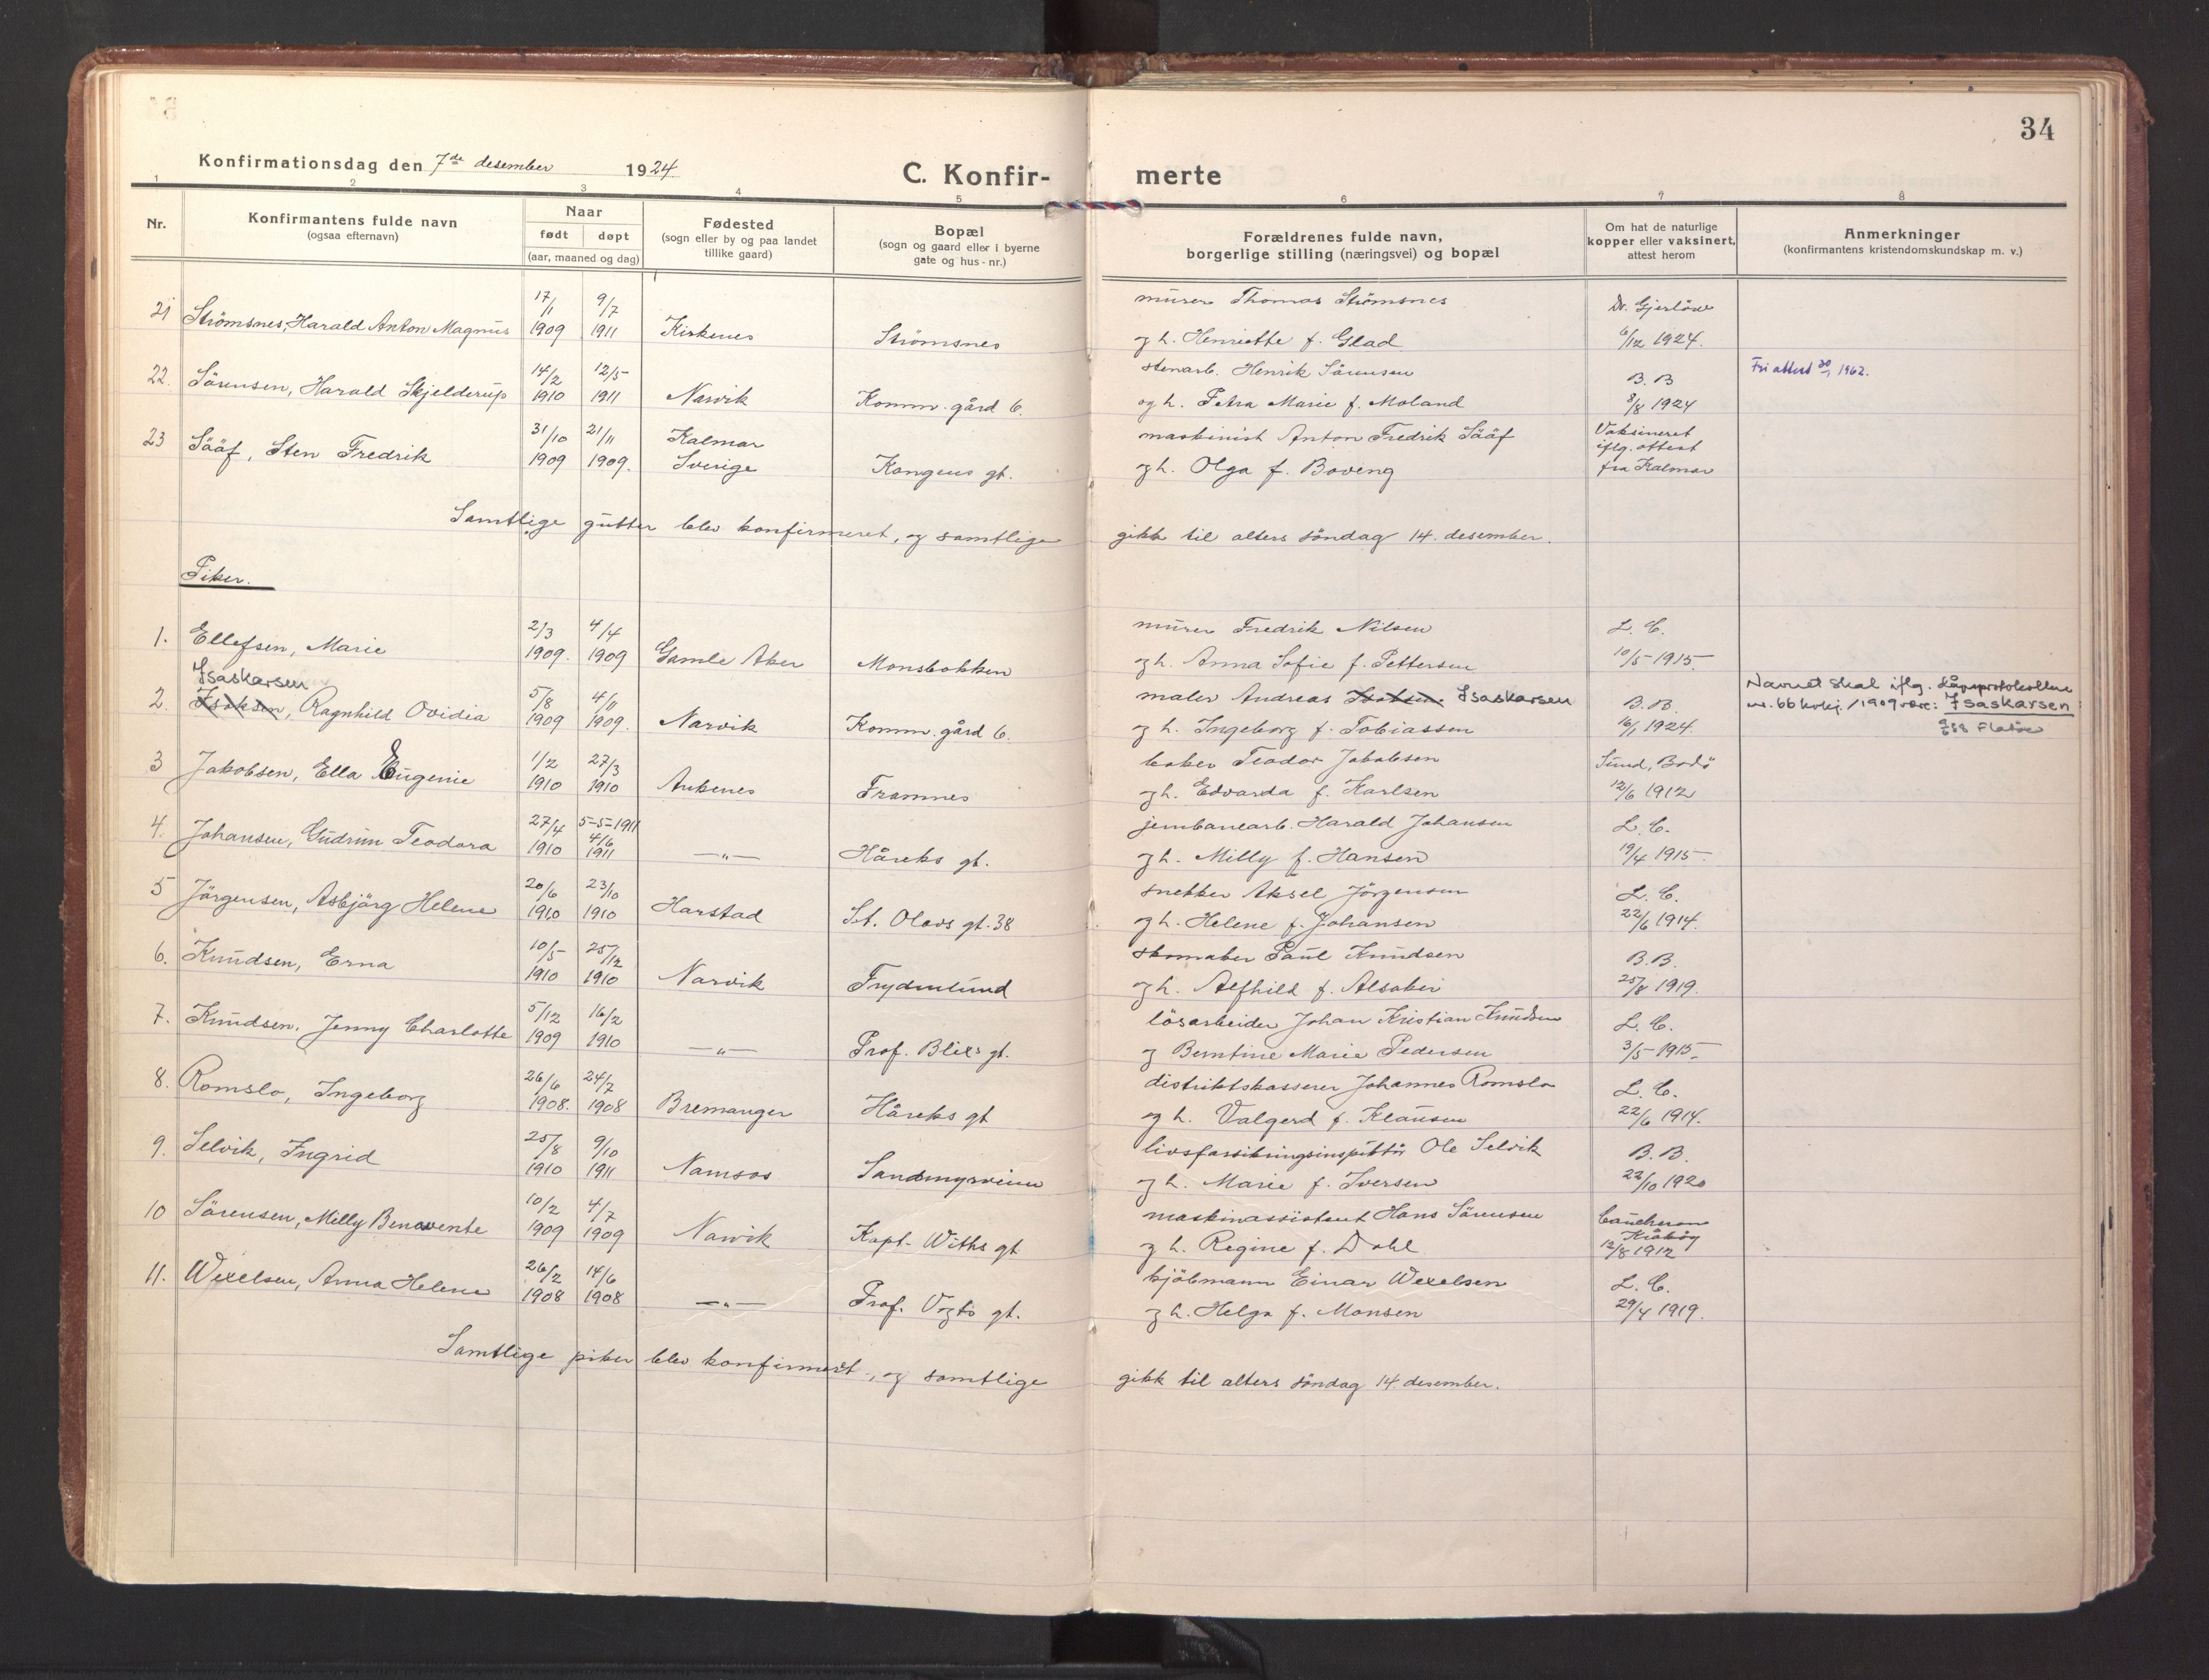 34
Konfirmationsdag den 7de desember 1924
C. Konfir-
merte
1 2 3 4 5 6 7 8
Nr.
Konfirmantens fulde navn
(ogsaa efternavn)
Naar
født døpt
(aar, maaned og dag)
Fødested
(sogn eller by og paa landet
tillike gaard)
Bopæl
(sogn og gaard eller i byerne
gate og hus-nr.)
Forældrenes fulde navn,
borgerlige stilling (næringsvei) og bopæl
Om hat de naturlige
kopper eller vaksinert,
attest herom
Anmerkninger
(konfirmantens kristendomskundskap m. v.)
17/1 9/7 murer Thomas Strömsnes Dr. Gjerløw
21 Strömsnes, Harald Anton Magnus 1909 1911 Kirkenes Strömsnes og h. Henriette f. Glad 6/12 1924.
14/2 12/5 stenarb. Henrik Sörensen B. B Fri attest 1962.
22. Sörensen, Harald Skjelderup 1910 1911 Narvik Komm. gård 6. og h. Petra Marie f. Moland 8/8 1924
31/10 21/11 Kalmar maskinist Anton Fredrik Sääf Vaksineret
23 Sääf, Sten Fredrik 1909 1909. Sverige Kongens gt. og h. Olga f. Boveng iflg. attest
fra Kalmar
Samtlige gutter blev konfirmeret, og samtlige gikk til alters söndag 14. desember.
Piker.
2/3 4/4 murer Fredrik Nilsen L. C.
1. Ellefsen, Marie 1909. 1909 Gamle Aker Monsbakken og h. Anna Sofie f. Pettersen 10/5 1915.
Isaskarsen
5/8 4/11 maler Andreas Isaksen Isaskarsen B. B. Navnet skal iflg. dåpsprotokollen
2. Isaksen, Ragnhild Ovidia 1909 1909. Narvik Komm. gård 6. og h. Ingeborg f. Tobiassen 16/1 1924. nr. 66 kvkj. /1909 være: Isaskarsen
1/2 27/3 baker Teodor Jakobsen Sund, Bodö
3 Jakobsen, Ella Eugenie 1910 1910 Ankenes Framnes og h. Edvarda f. Karlsen 12/6 1912
27/4 5-5-1911 jernbanearb. Harald Johansen L. C.
4. Johansen, Gudrun Teodora 1910 4/6 1911 —"— Håreks gt. og h. Milly f. Hansen 19/4 1915.
20/6 23/10 snekker Aksel Jörgensen L. C.
5 Jörgensen, Asbjörg Helene 1910 1910 Harstad St. Olavs gt. 38 og h. Helene f. Johansen 22/6 1914.
10/5 25/12 skomaker Paul Knudsen B. B.
6. Knudsen, Erna 1910 1910 Narvik Frydenlund og h. Alfhild f. Alsaker 25/8 1919.
5/12 16/2 lösarbeider Johan Kristian Knudsen L. C.
7. Knudsen, Jenny Charlotte 1909 1910 —"— Prof. Blixs gt. og Berntine Marie Pedersen 3/5 1915.
26/6 24/7 distriktskasserer Johannes Romslo L. C.
8. Romslo, Ingeborg 1908. 1908 Bremanger Håreks gt og h. Valgerd f. Klausen 22/6 1914.
25/8 9/10 livsforsikringsinspektör Ole Selvik B. B.
9. Selvik, Ingrid 1910 1911 Namsos Sandmyrveien og h. Marie f. Iversen 22/10 1920
10/2 4/7 maskinassistent Hans Sörensen
10 Sörensen, Milly Benavente 1909 1909 Narvik Kapt. Withs gt og h. Regine f. Dahl 12/8 1912
26/2 14/6 kjöbmann Einar Wexelsen L. C.
11. Wexelsen, Anna Helene 1908 1908 —"— Prof. Vogts gt. og h. Helga f. Monsen 29/4 1919.
Samtlige piker blev konfirmert, og samtlige gikk til alters söndag 14. desember.